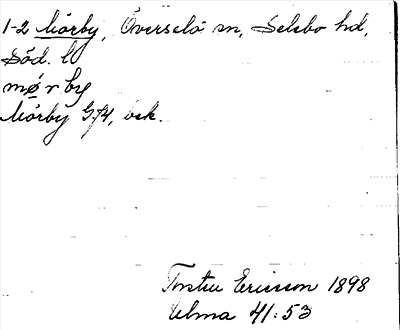 1-2 Mörby, Överselö sn, Selebo hd,
Söd. l
mø̀r by
Mörby G74, bsk.
Torsten Ericsson 1898
Ulma 41:53